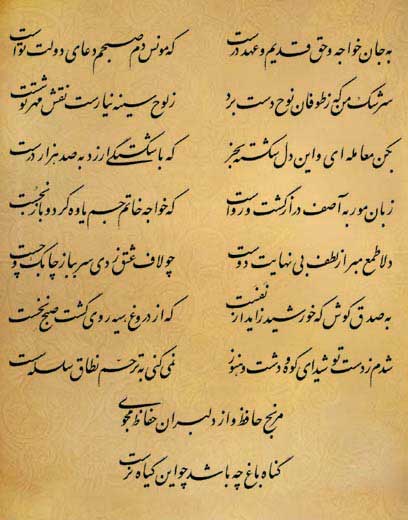 به جان خواجه و حق قدیم و عهد درست که مونس دم صبحم دعای دولت تو است
سرشک من که ز طوفان نوح دست برد ز لوح سینه نیارست نقش مهر تو شست
بکن معامله ای و این دل شکسته بخر که با شکستگی ارزد به صد هزار درست
زبان مور به آصف دراز گشت و رواست که خواجه خاتم جم یاوه کرد و باز نجست
دلا طمع مبر از لطف بی نهایت دوست چو لاف عشق زدی سر بباز چابک و چست
به صدق کوش که خورشید زاید از نفست که از دروغ سیه روی گشت صبح نخست
شدم ز دست تو شیدای کوه و دشت و هنوز نمی کنی به ترحم نطاق سلسله سست
مرنج حافظ و از دلبران حفاظ مجوی
گناه باغ چه باشد چو این گیاه نرست